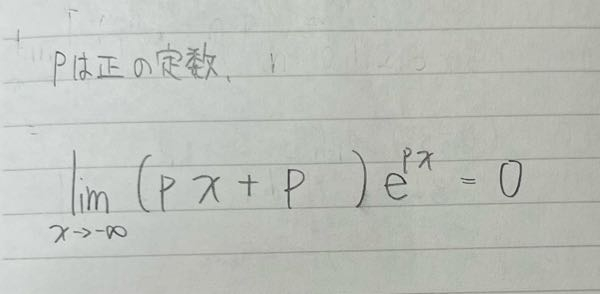 Pは正の定数、
lim (px + p ) e^{px} = 0
x→-∞